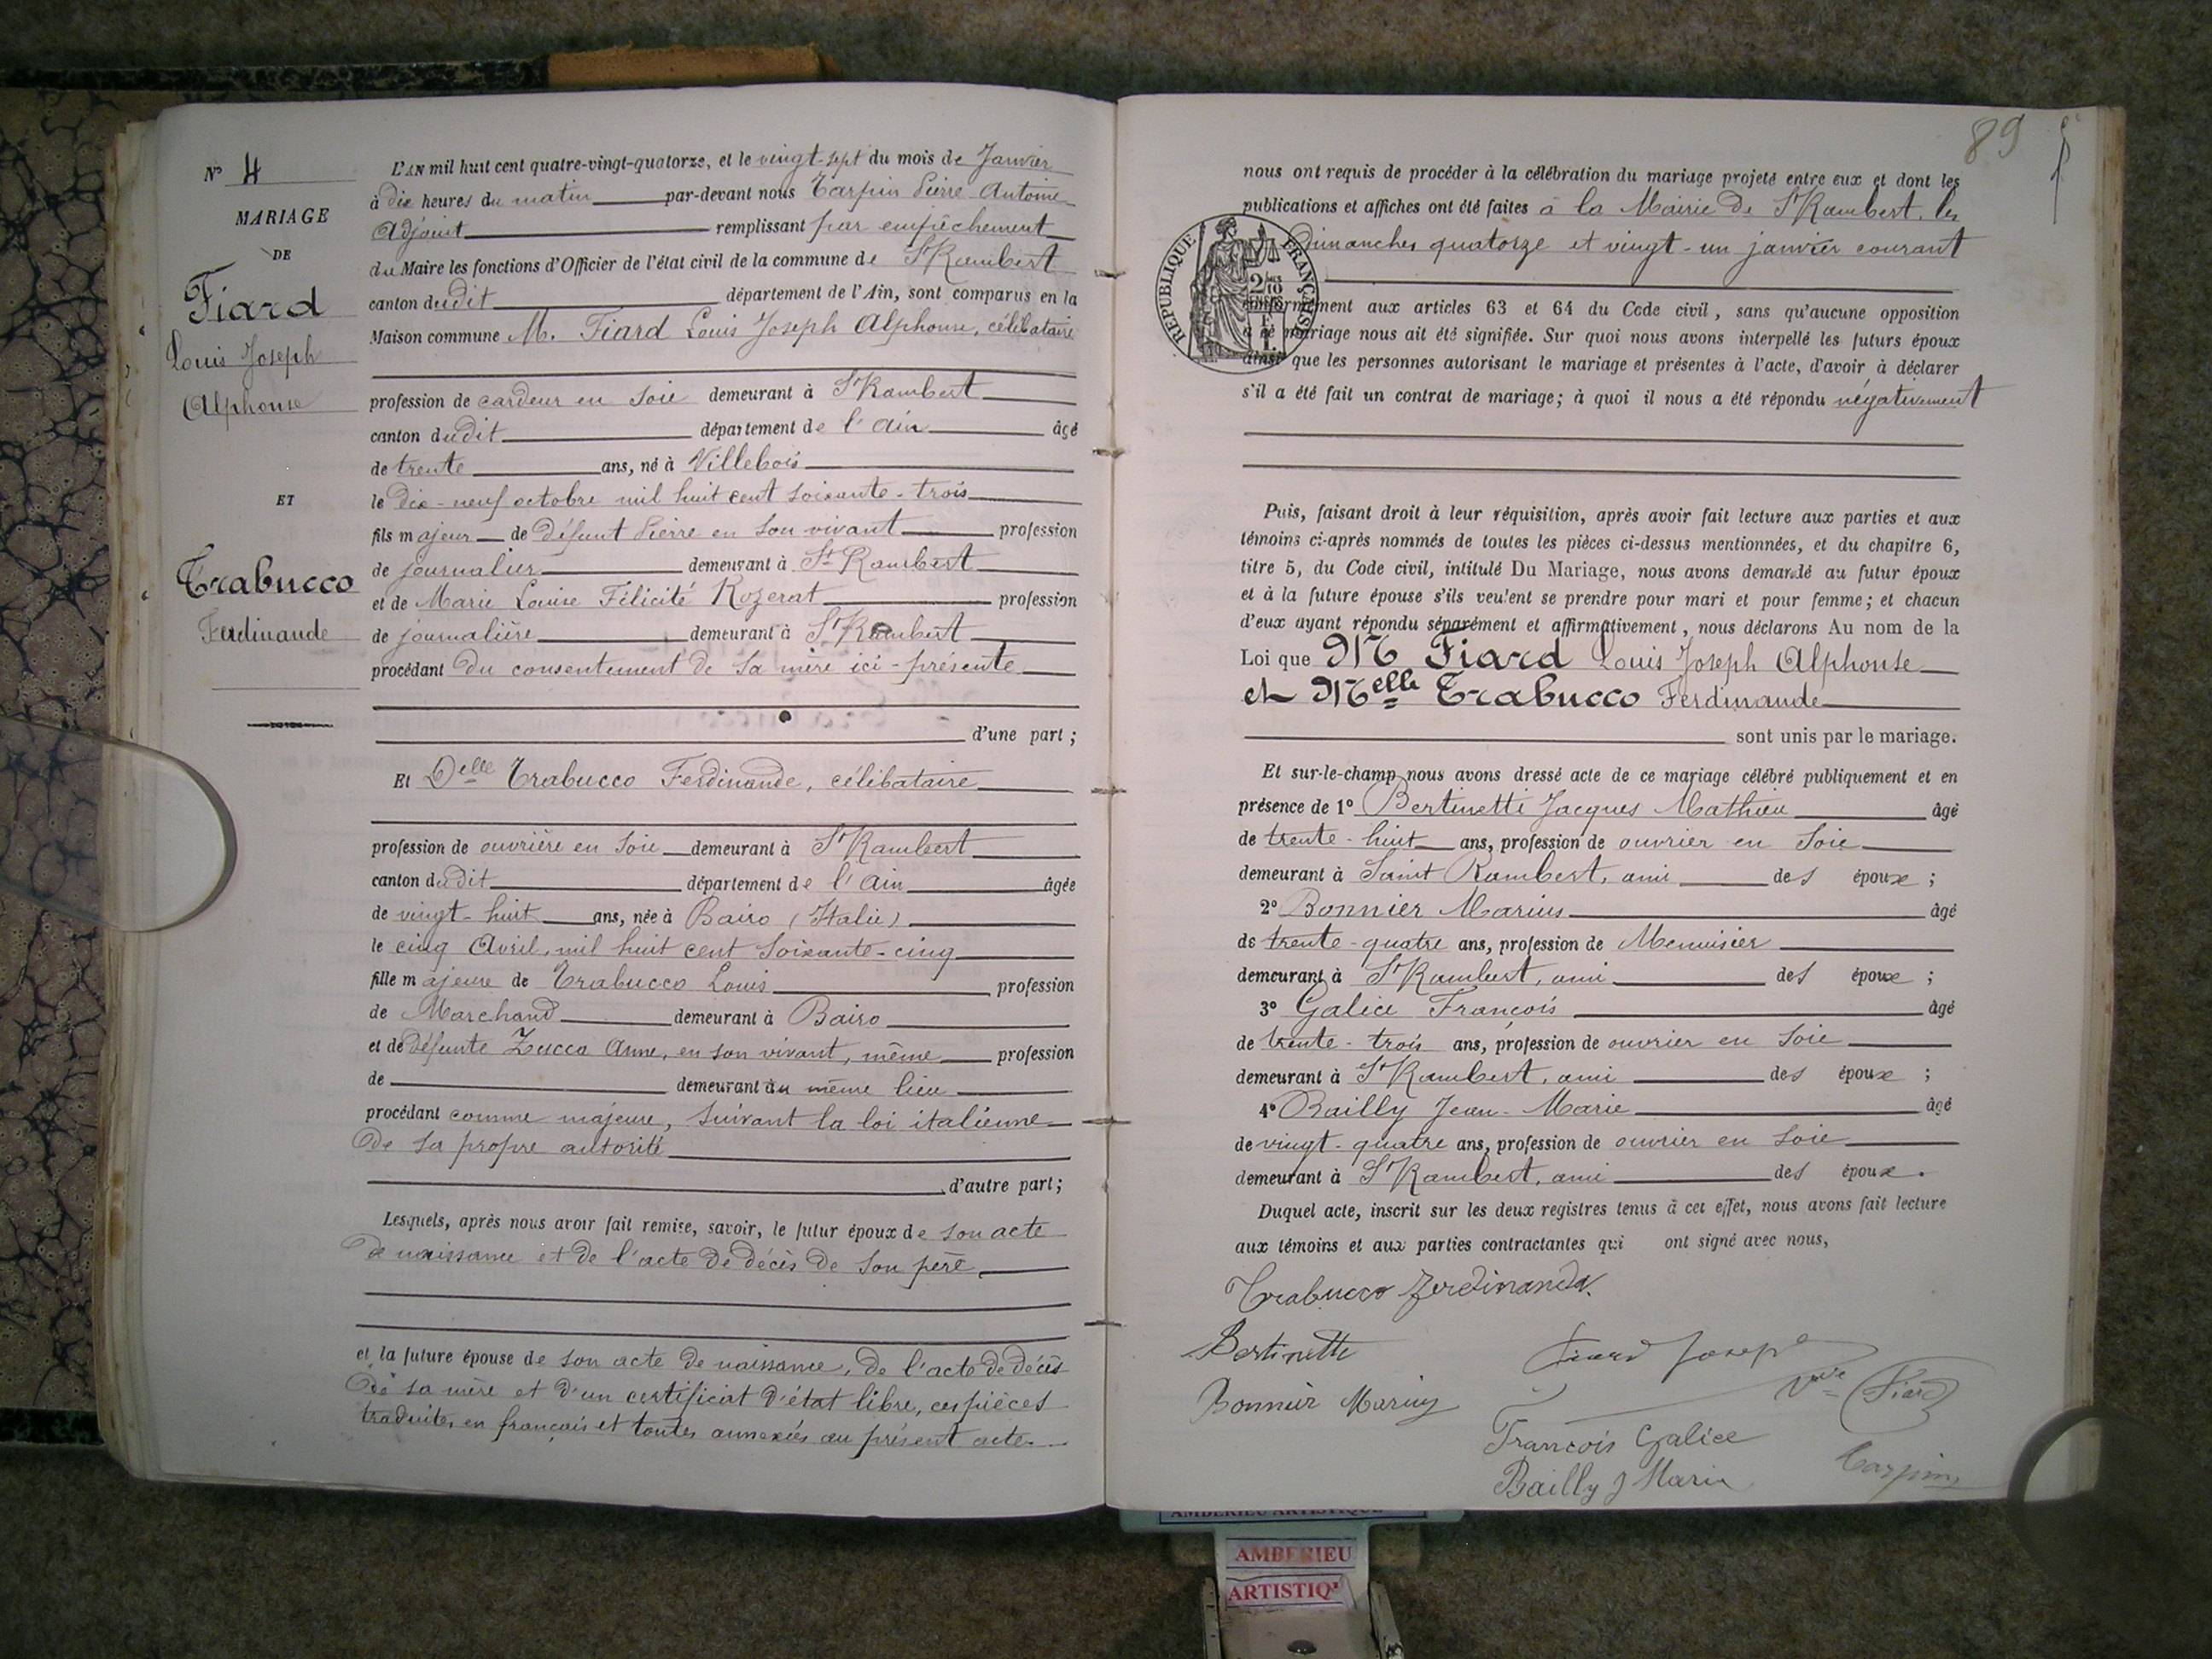 N° 4
MARIAGE
DE
Fiard
Louis Joseph
Alphonse
ET
Trabucco
Ferdinande
L'AN mil huit cent quatre-vingt-quatorze, et le vingt-sept du mois de Janvier
à dix heures du matin par-devant nous Tarpin Pierre Antoine
Adjoint remplissant par empêchement
du Maire les fonctions d'Officier de l'état civil de la commune de St Rambert
canton dudit département de l'Ain, sont comparus en la
Maison commune M. Fiard Louis Joseph Alphonse, célibataire
profession de cardeur en soie demeurant à St Rambert
canton dudit département de l'Ain âgé
de trente ans, né à Villebois
le dix-neuf octobre mil huit cent soixante-trois
fils majeur de défunt Pierre en son vivant profession
de journalier demeurant à St Rambert
et de Marie Louise Félicité Rozerat profession
de journalière demeurant à St Rambert
procédant du consentement de sa mère ici-présente
d'une part ;
Et Delle Trabucco Ferdinande, célibataire
profession de ouvrière en soie demeurant à St Rambert
canton dudit département de l'Ain âgée
de vingt-huit ans, née à Bairo (Italie)
le cinq Avril, mil huit cent soixante-cinq
fille majeure de Trabucco Louis profession
de Marchand demeurant à Bairo
et de défunte Zucca Anne, en son vivant, même profession
de demeurant au même lieu
procédant comme majeure, suivant la loi italienne
de sa propre autorité
d'autre part ;
Lesquels, après nous avoir fait remise, savoir, le futur époux de son acte
de naissance et de l'acte de décès de son père,
et la future épouse de son acte de naissance, de l'acte de décès
de sa mère et d'un certificat d'état libre, ces pièces
traduites en français et toutes annexées au présent acte
89
nous ont requis de procéder à la célébration du mariage projeté entre eux et dont les
publications et affiches ont été faites à la Mairie de St Rambert, les
Dimanches quatorze et vingt-un janvier courant
RÉPUBLIQUE FRANÇAISE
conformément aux articles 63 et 64 du Code civil, sans qu'aucune opposition
à ce mariage nous ait été signifiée. Sur quoi nous avons interpellé les futurs époux
ainsi que les personnes autorisant le mariage et présentes à l'acte, d'avoir à déclarer
s'il a été fait un contrat de mariage; à quoi il nous a été répondu négativement
Puis, faisant droit à leur réquisition, après avoir fait lecture aux parties et aux
témoins ci-après nommés de toutes les pièces ci-dessus mentionnées, et du chapitre 6,
titre 5, du Code civil, intitulé Du Mariage, nous avons demandé au futur époux
et à la future épouse s'ils veulent se prendre pour mari et pour femme; et chacun
d'eux ayant répondu séparément et affirmativement, nous déclarons Au nom de la
Loi que M Fiard Louis Joseph Alphonse
et Melle Trabucco Ferdinande
sont unis par le mariage.
Et sur-le-champ nous avons dressé acte de ce mariage célébré publiquement et en
présence de 1° Bertinetti Jacques Mathieu âgé
de trente-huit ans, profession de ouvrier en soie
demeurant à Saint Rambert, ami des époux ;
2° Bonnier Marius âgé
de trente-quatre ans, profession de Menuisier
demeurant à St Rambert, ami des époux ;
3° Galice François âgé
de trente-trois ans, profession de ouvrier en soie
demeurant à St Rambert, ami des époux ;
4° Bailly Jean-Marie âgé
de vingt-quatre ans, profession de ouvrier en soie
demeurant à St Rambert, ami des époux.
Duquel acte, inscrit sur les deux registres tenus à cet effet, nous avons fait lecture
aux témoins et aux parties contractantes qui ont signé avec nous,
Trabucco Ferdinanda
Bertinetti
Fiard Joseph
Vve Fiard
Bonnier Marius
François Galice
Bailly J Marie
Tarpin
AMBERIEU ARTISTIQUE
AMBERIEU
ARTISTIQ